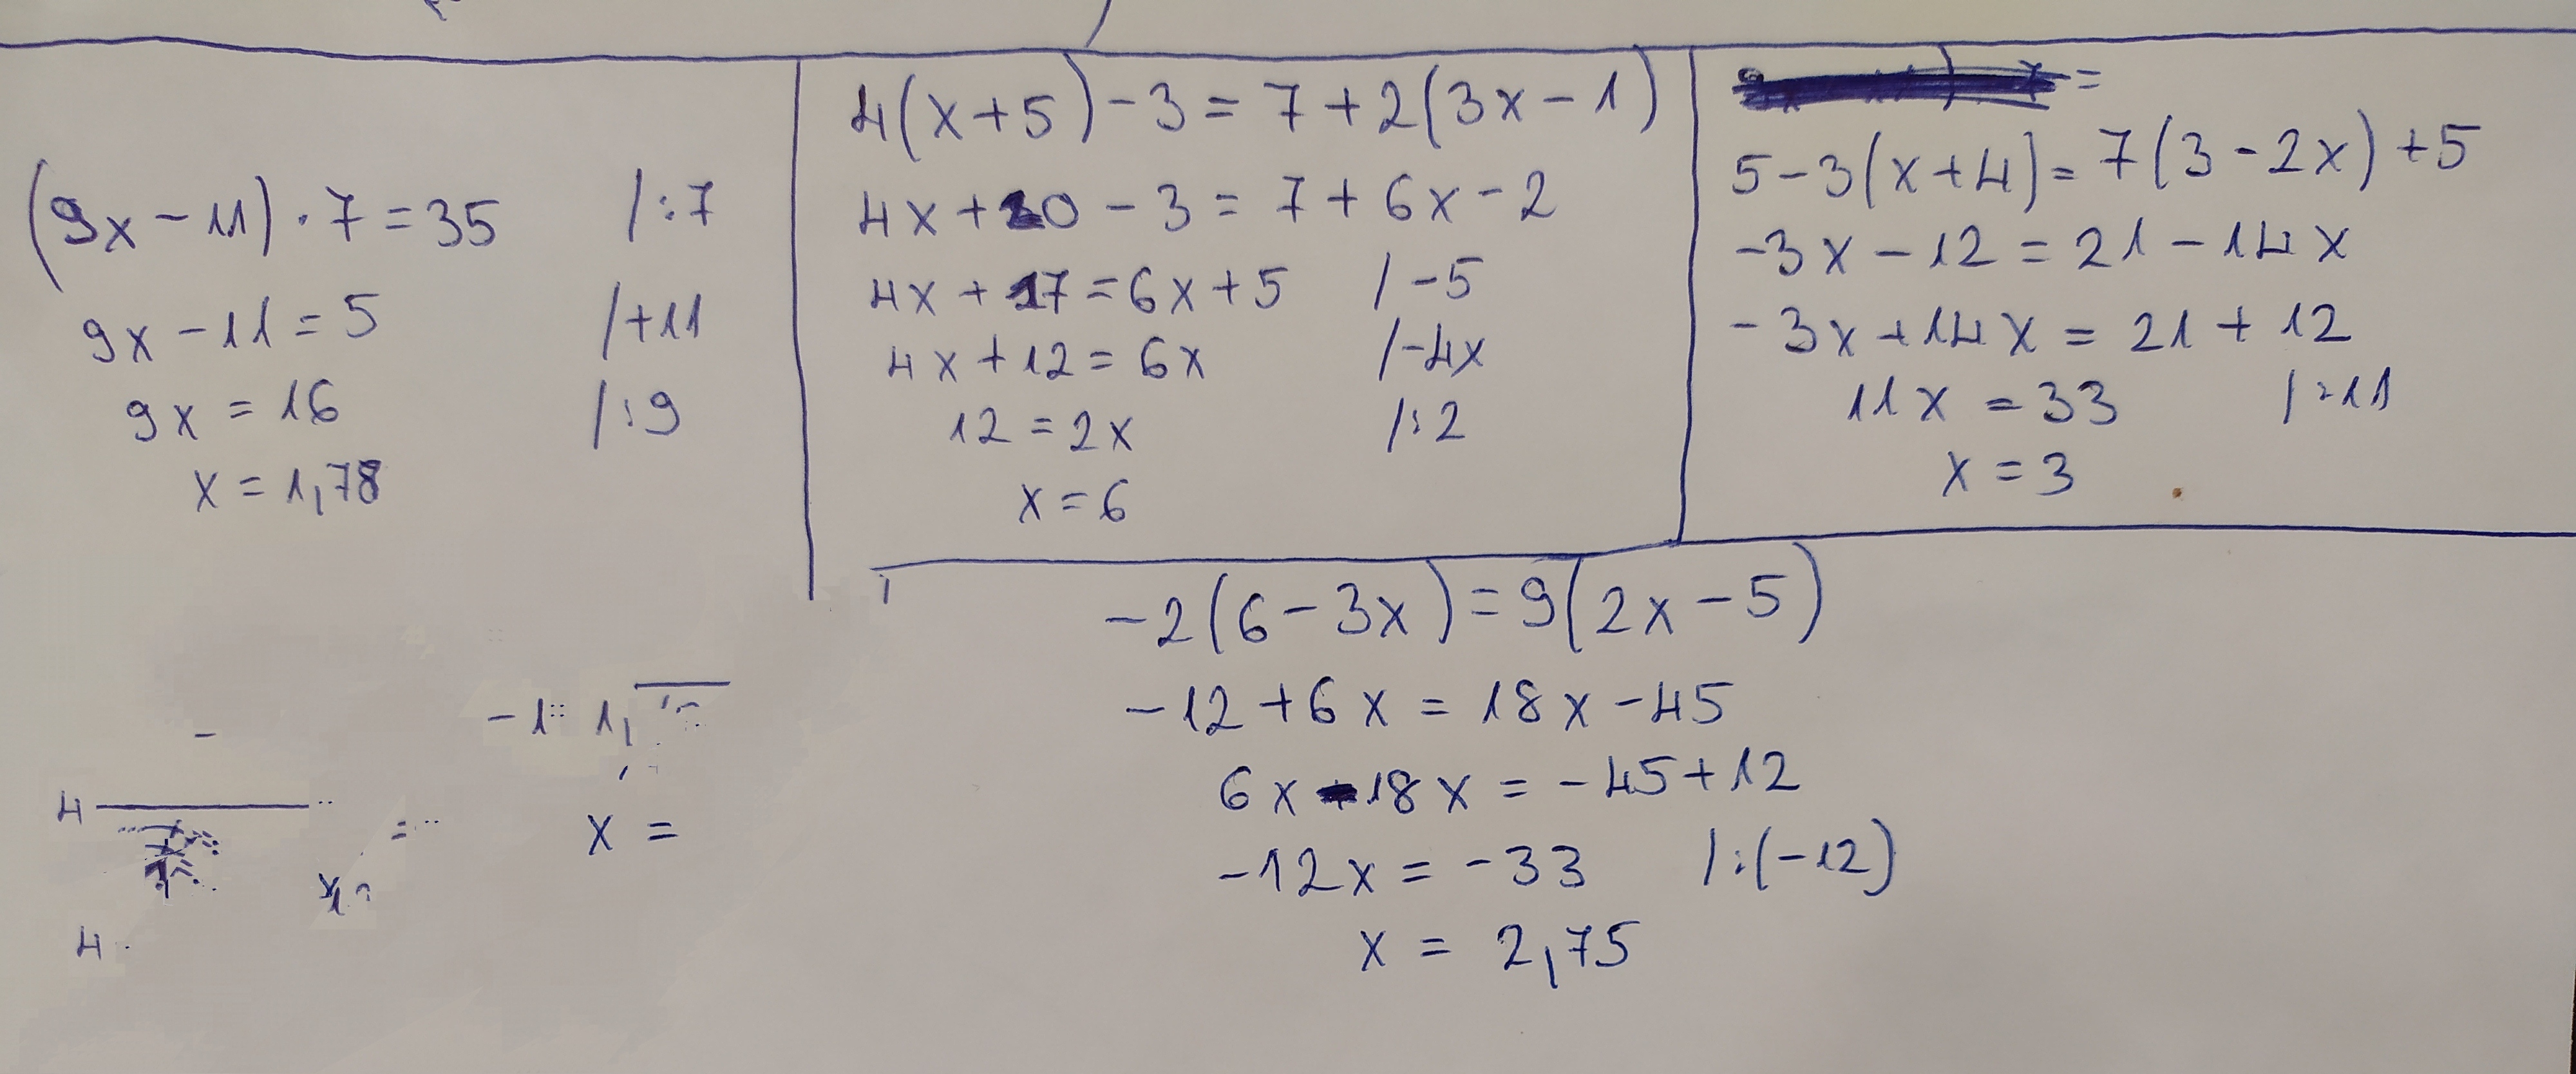 (9x - 11) · 7 = 35 /:7
9x - 11 = 5 /+11
9x = 16 /:9
x = 1,78
4(x + 5) - 3 = 7 + 2(3x - 1)
4x + 20 - 3 = 7 + 6x - 2
4x + 17 = 6x + 5 / -5
4x + 12 = 6x /-4x
12 = 2x /:2
x = 6
=
5 - 3(x + 4) = 7(3 - 2x) + 5
-3x - 12 = 21 - 14x
-3x + 14x = 21 + 12
11x = 33 /:11
x = 3
-2(6 - 3x) = 9(2x - 5)
-12 + 6x = 18x - 45
6x - 18x = -45 + 12
-12x = -33 /:(-12)
x = 2,75
x =
4
4